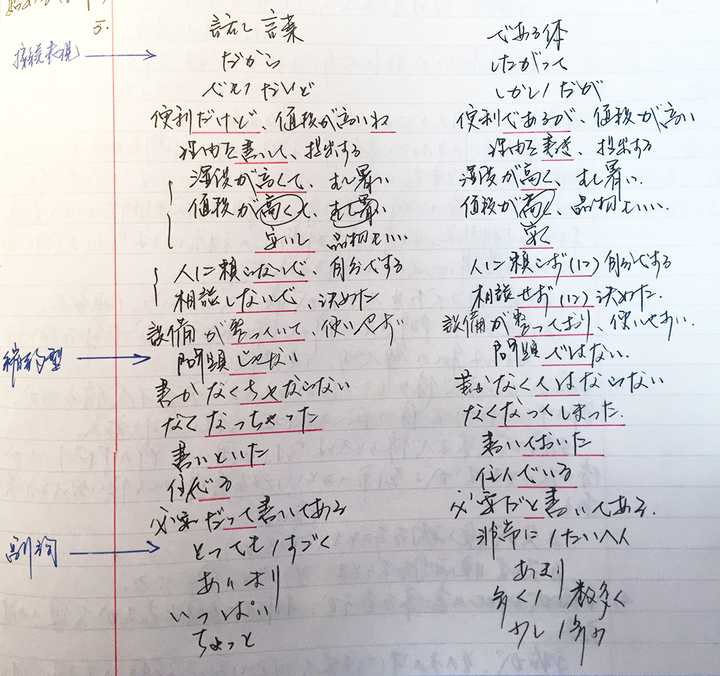 5. 話し言葉 である体
接続表現 だから したがって
でも/だけど しかし/だが
便利だけど、値段が高いね 便利であるが、値段が高い
理由を書いて、提出する 理由を書き、提出する
湿度が高くて、むし暑い 湿度が高く、むし暑い.
値段が高くて、むし暑い 値段が高く、品物もいい.
安いし 品物もいい 安く
人に頼らないで、自分でする 人に頼らず(に)自分でする
相談しないで、決めた 相談せず(に)決めた.
設備が整っていて、使いやす 設備が整っており、使いやすい.
縮約型 問題じゃない 問題ではない.
書かなくちゃならない 書かなくてはならない
なくなっちゃった なくなってしまった.
書いといた 書いておいた
住んでる 住んでいる
必要だって書いてある 必要だと書いてある.
副詞 とっても/すごく 非常に/たいへん
あんまり あまり
いっぱい 多く/数多く
ちょっと 少し/多少